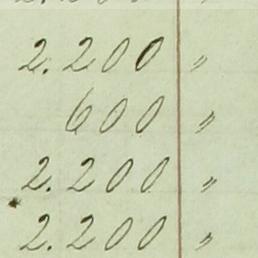 2.200 "
600 "
2.200 "
2.200 "